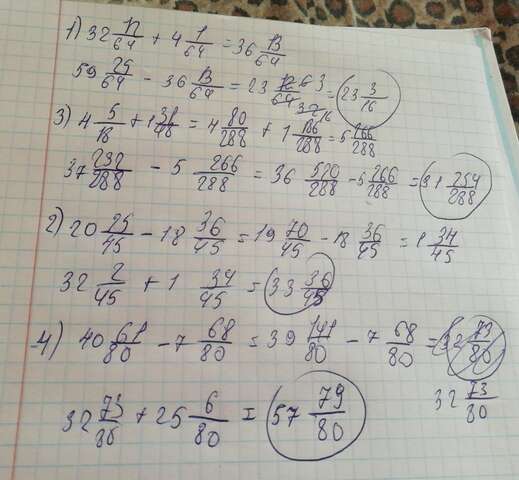 1) 32 12/64 + 4 1/64 = 36 13/64
59 25/64 - 36 13/64 = 23 12/64 6 3/32 16 = 23 3/16
3) 4 5/18 + 1 31/48 = 4 80/288 + 1 186/288 = 5 266/288
37 232/288 - 5 266/288 = 36 520/288 - 5 266/288 = 31 254/288
2) 20 25/45 - 18 36/45 = 19 70/45 - 18 36/45 = 1 34/45
32 2/45 + 1 34/45 = 33 36/45
4) 40 61/80 - 7 68/80 = 39 141/80 - 7 68/80 = 32 73/80
32 73/80
32 73/80 + 25 6/80 = 57 79/80